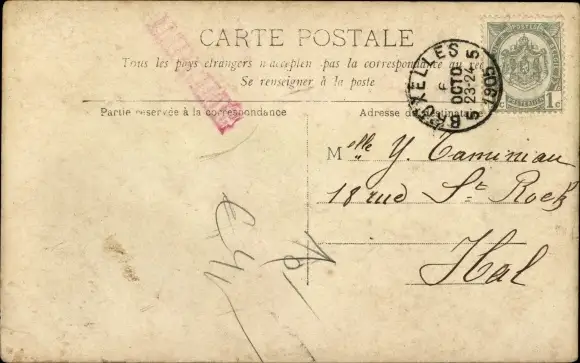 CARTE POSTALE
Tous les pays étrangers n'acceptent pas la correspondance au recto
Se renseigner à la poste
Partie réservée à la correspondance
Adresse du destinataire
BRUXELLES 5
6 OCTO
23-24
1905
5
1c
Melle Y. Taminiau
18 rue St Roch
Hal